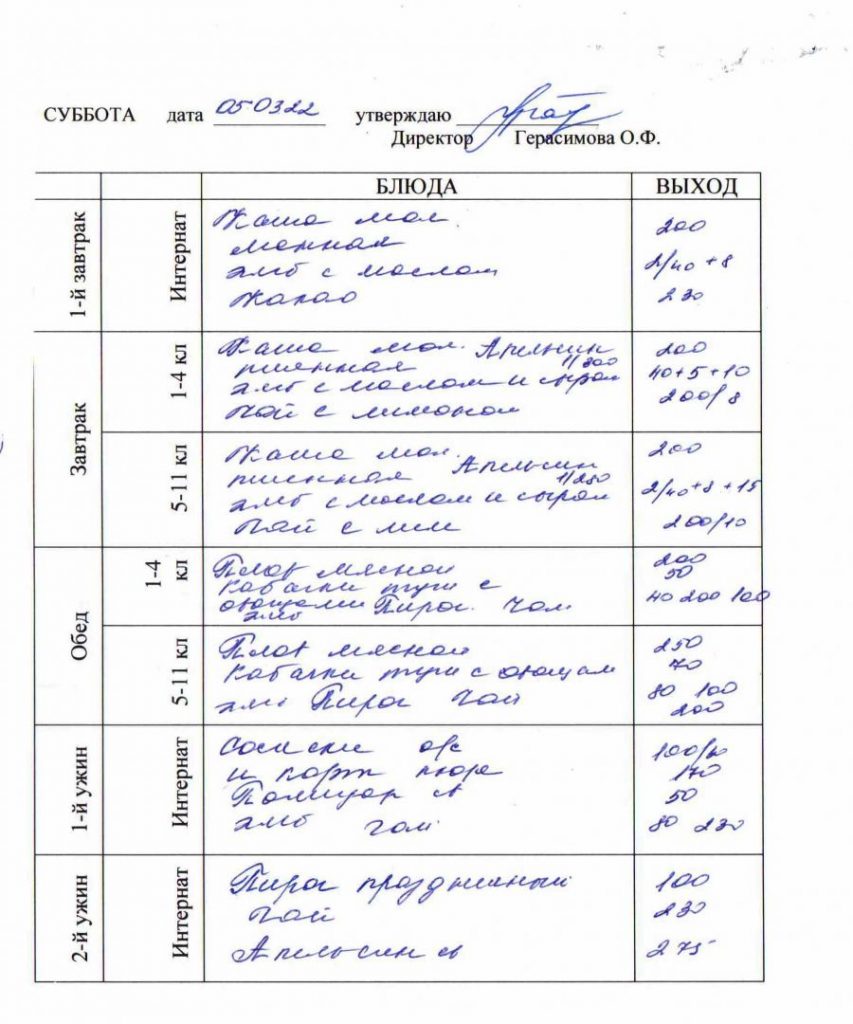 СУББОТА дата 050322 утверждаю
Директор Герасимова О.Ф.
БЛЮДА ВЫХОД
1-й завтрак Интернат
Каша мол. 200
манная
хлеб с маслом 2/40+8
Какао 230
Завтрак
1-4 кл
Каша мол. Апельсин 200
пшенная 1/300 40+5+10
хлб с маслом и сыром 200/8
Чай с лимоном
5-11 кл
Каша мол. 200
пшенная Апельсин
1/280
хлб с маслом и сыром 2/40+8+15
Чай с лим 200/10
Обед
1-4 кл
Плов мясной 200
Кабачки туш с 50
овощами Пирог. Чай 40 200 100
хлб
5-11 кл
Плов мясной 250
Кабачки туш с овощам 70
хлб Пирог Чай 80 100
200
1-й ужин Интернат
Сосиски о/с
и карт пюре 170
Помидор св 50
хлб чай 80 230
2-й ужин Интернат
Пирог праздничный 100
Чай 230
Апельсин св 275